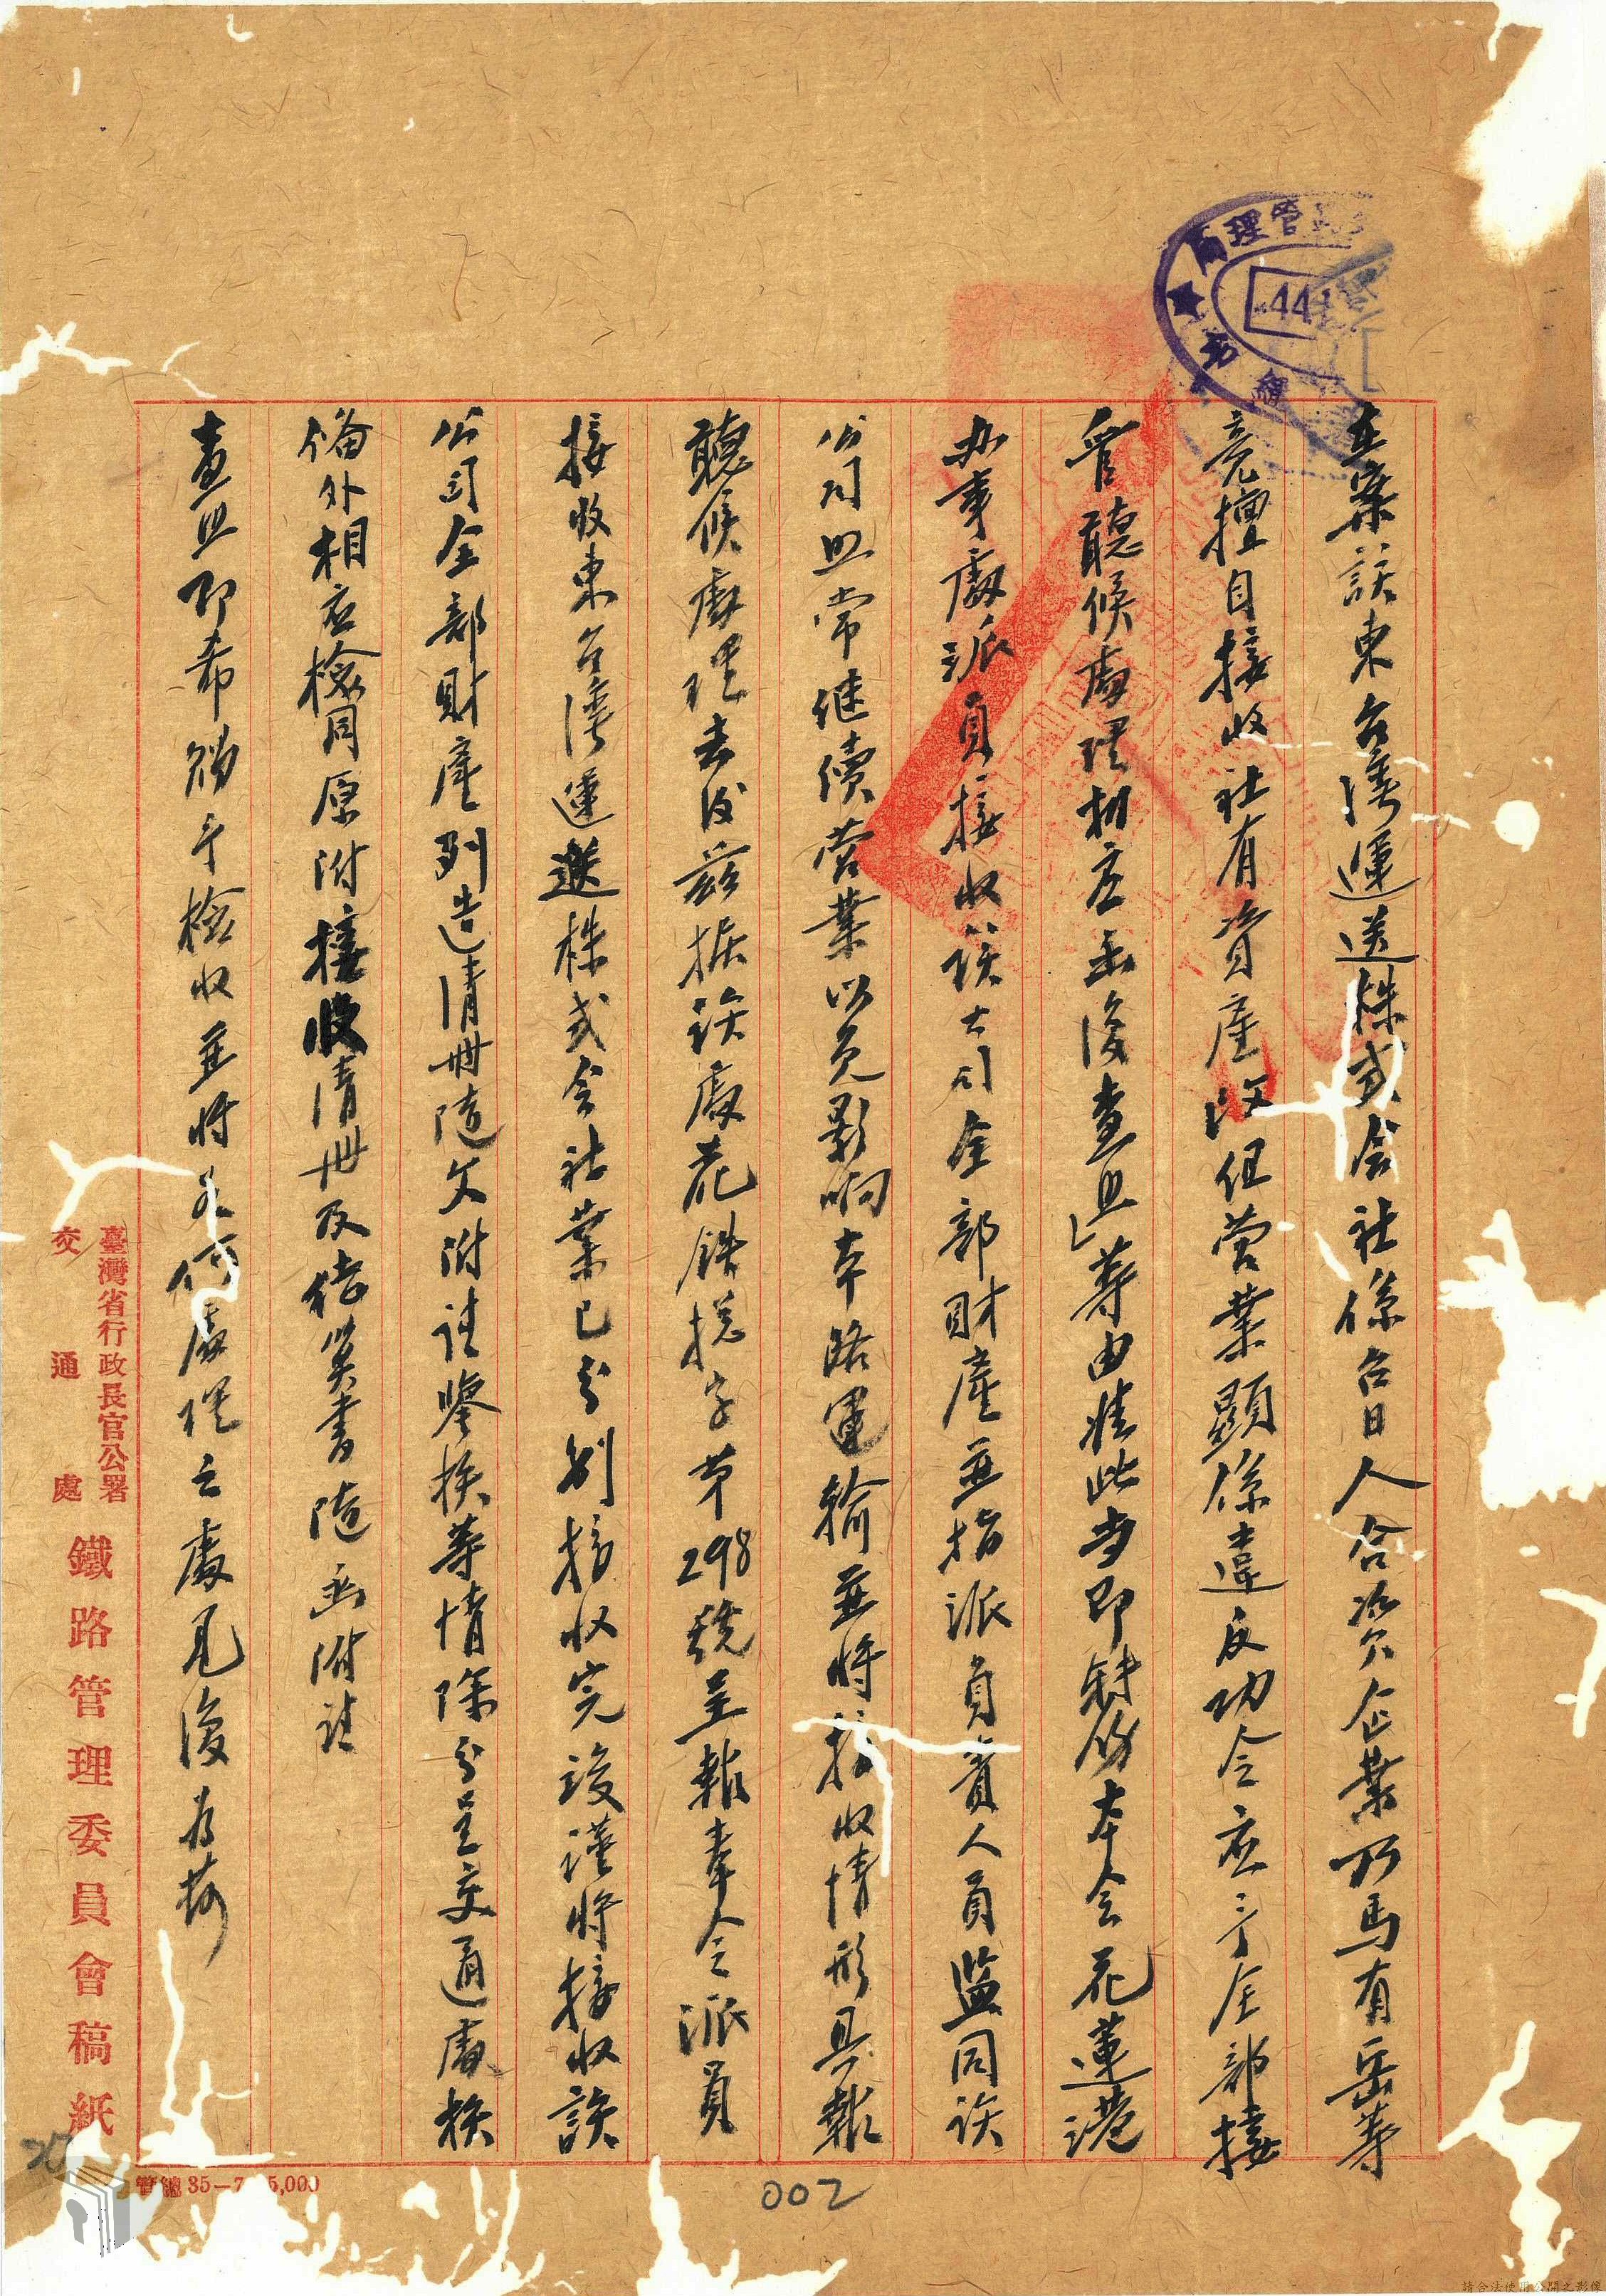 在案該東台湾運送株式会社係台日人合资企業乃馬有岳等
竟擅自接收社有資產改任营業顕係違反功令应予全部接
管聽候處理相应函復查照」等由准此当即转饬本会花蓮港
办事處派員接收该公司全部財產並指派員責人員监同该
公司照常继续营業以免影响本路運輸並将接收情形具報
聽候處理去後兹据該處花鉄总字第298號呈報奉令派員
接收東台湾運送株式会社業已分别接收完竣謹将接收該
公司全部財產列造清册隨文附请鑒核等情除分呈交通處核
俻外相应檢同原附接收清册及估價書随函附请
查照即希賜予检收並将如何處理之處見復为荷
臺灣省行政長官公署
交通處
鐵路管理委員會稿紙
管總35-7 5,000
002
局理管
44
請合法使用公開之影像